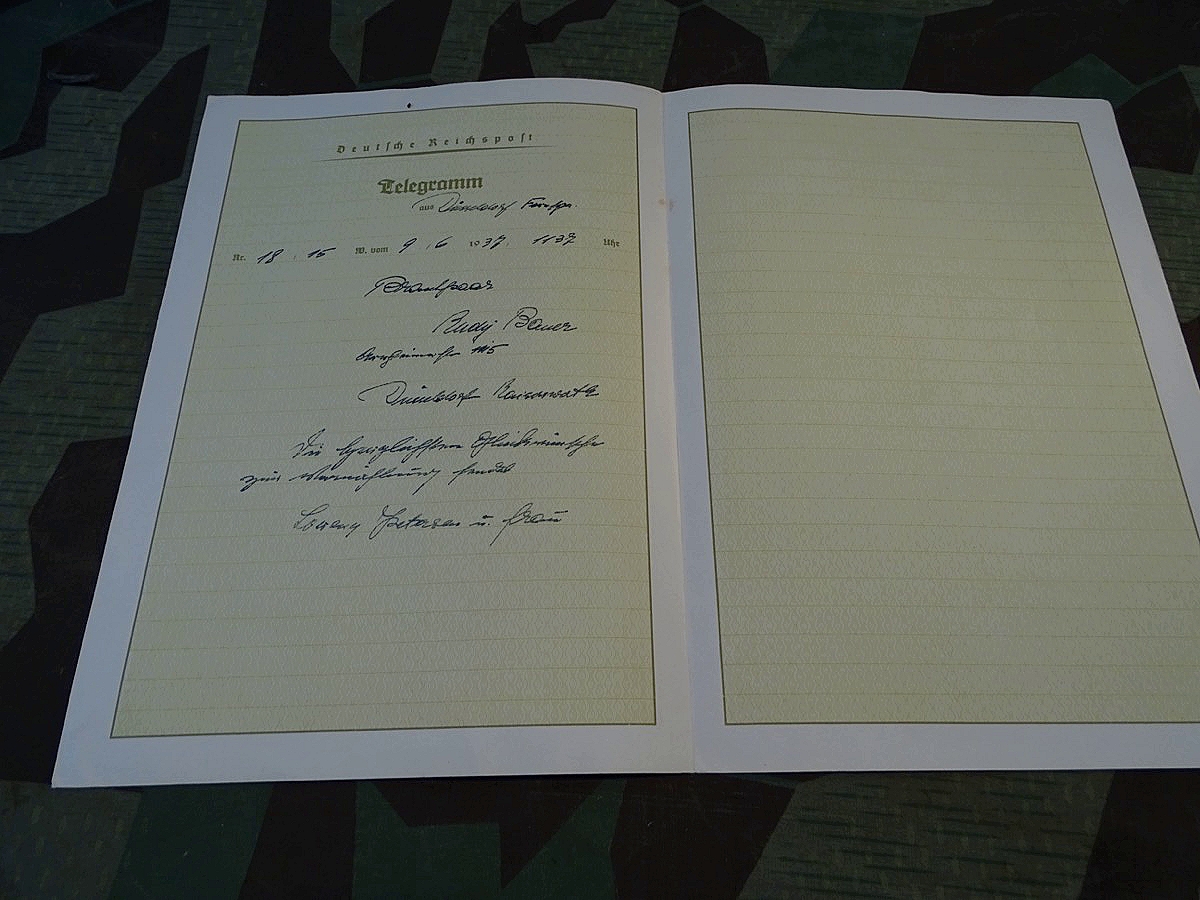 Deutsche Reichspost
Telegramm
aus Düsseldorf Fernspr.
Nr. 18 15 W. vom 9.6 1937, 1137 Uhr
Brautpaar
Rudy Bauer
115
Düsseldorf Kaiserswerth
Die herzlichsten Glückwünsche
zur Vermählung sendet
Lorenz Petersen u. Frau